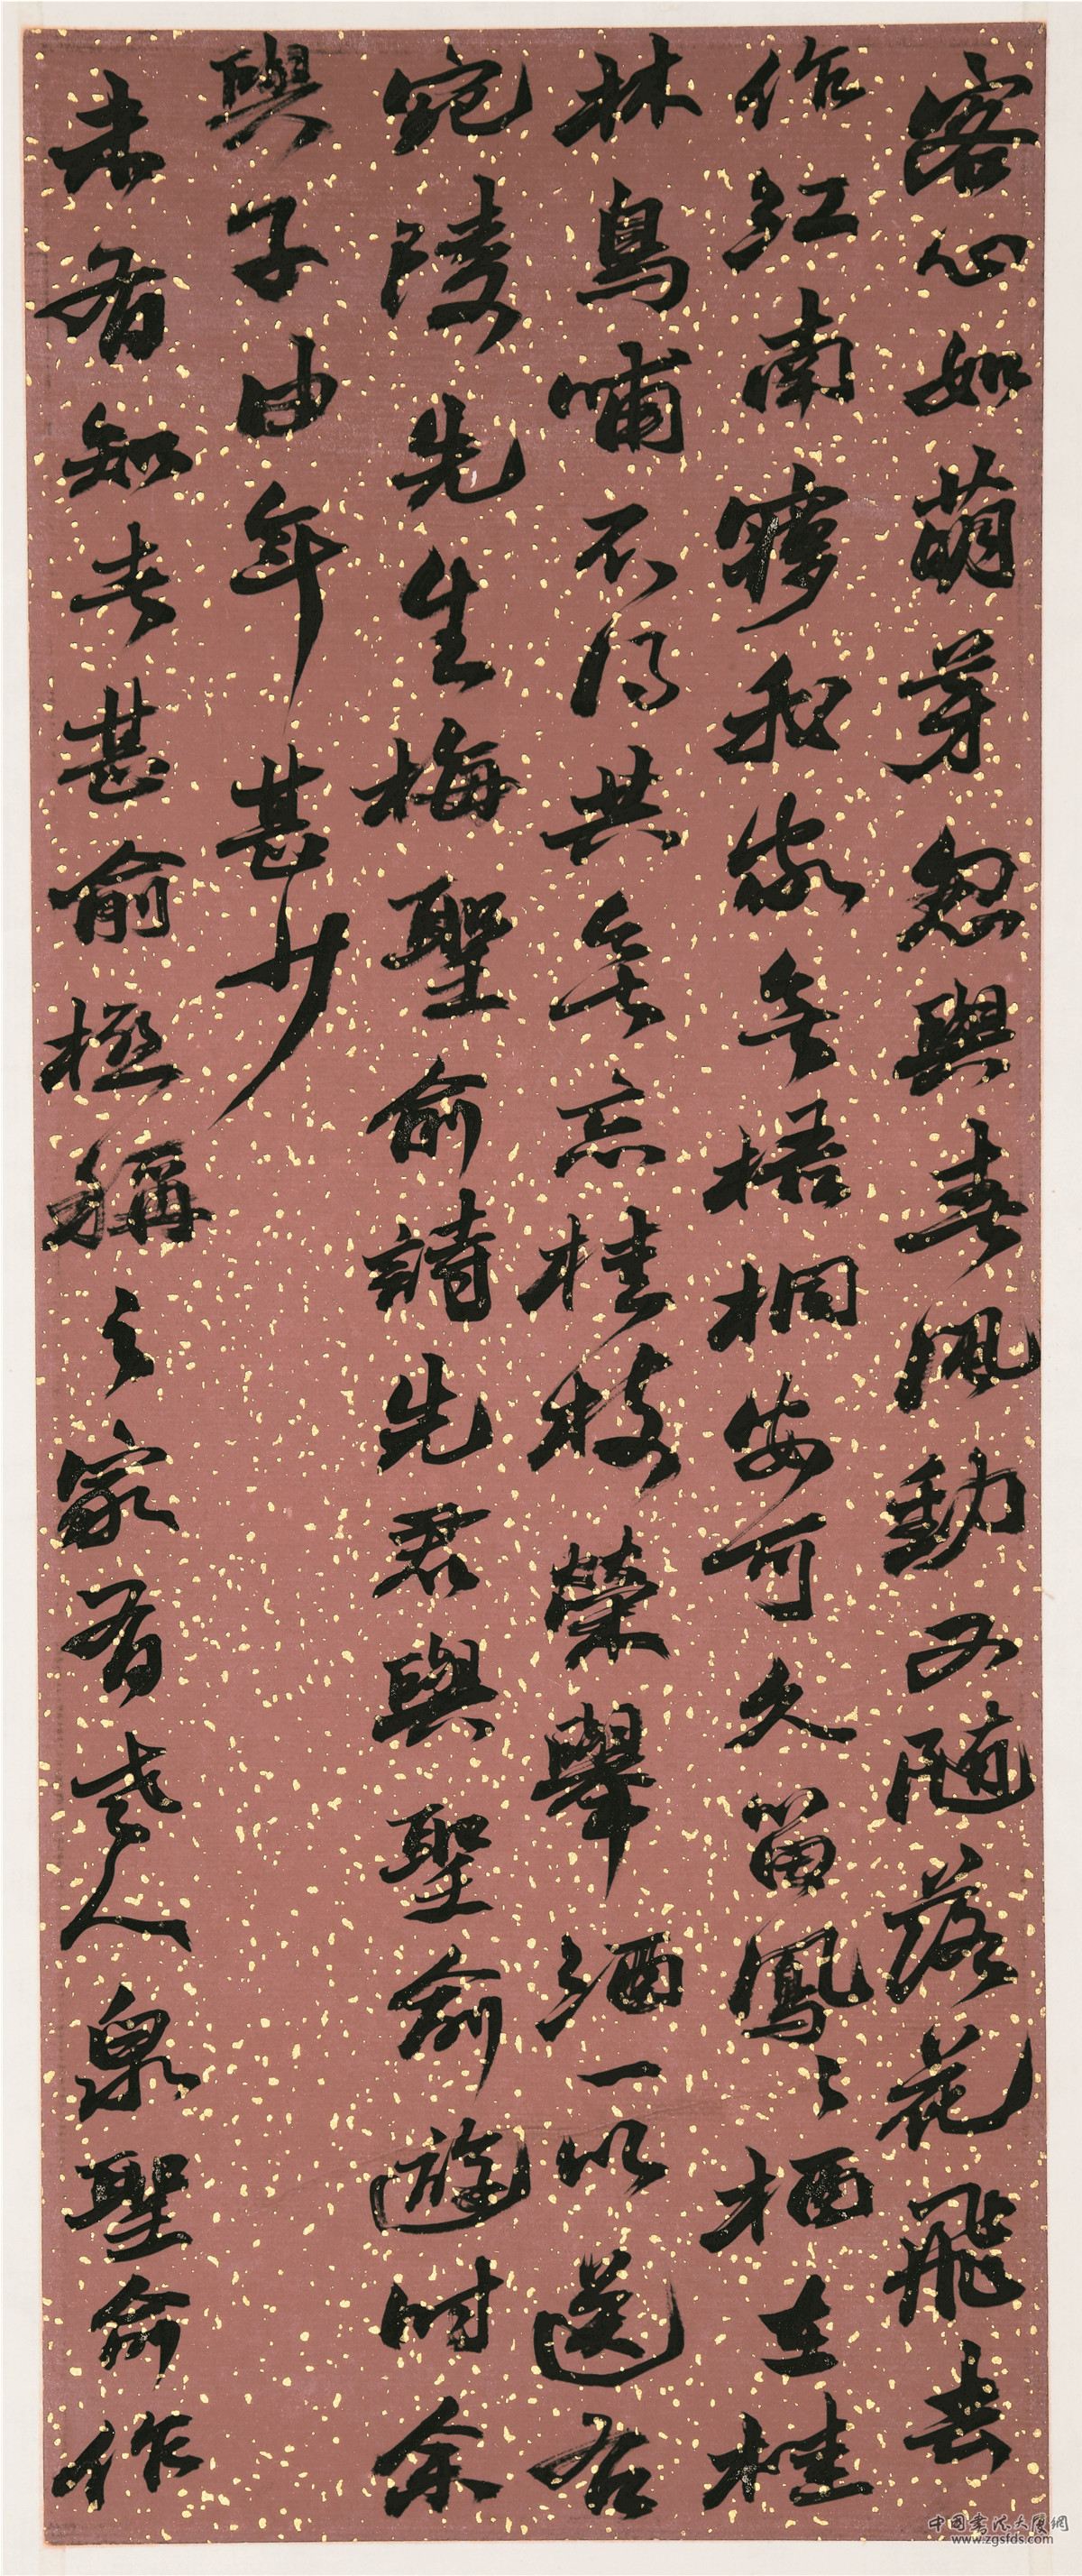 客心如萌芽忽與春風動又隨落花飛去
作江南夢我家無梧桐安可久留鳳鳳栖在桂
林烏哺不得共無忘桂枝榮舉酒一以送右
宛陵先生梅聖俞詩先君與聖俞遊時余
與子由年甚少
未有知者甚俞極稱之家有老人泉聖俞作
中国书法大厦網
www.zgsfds.com